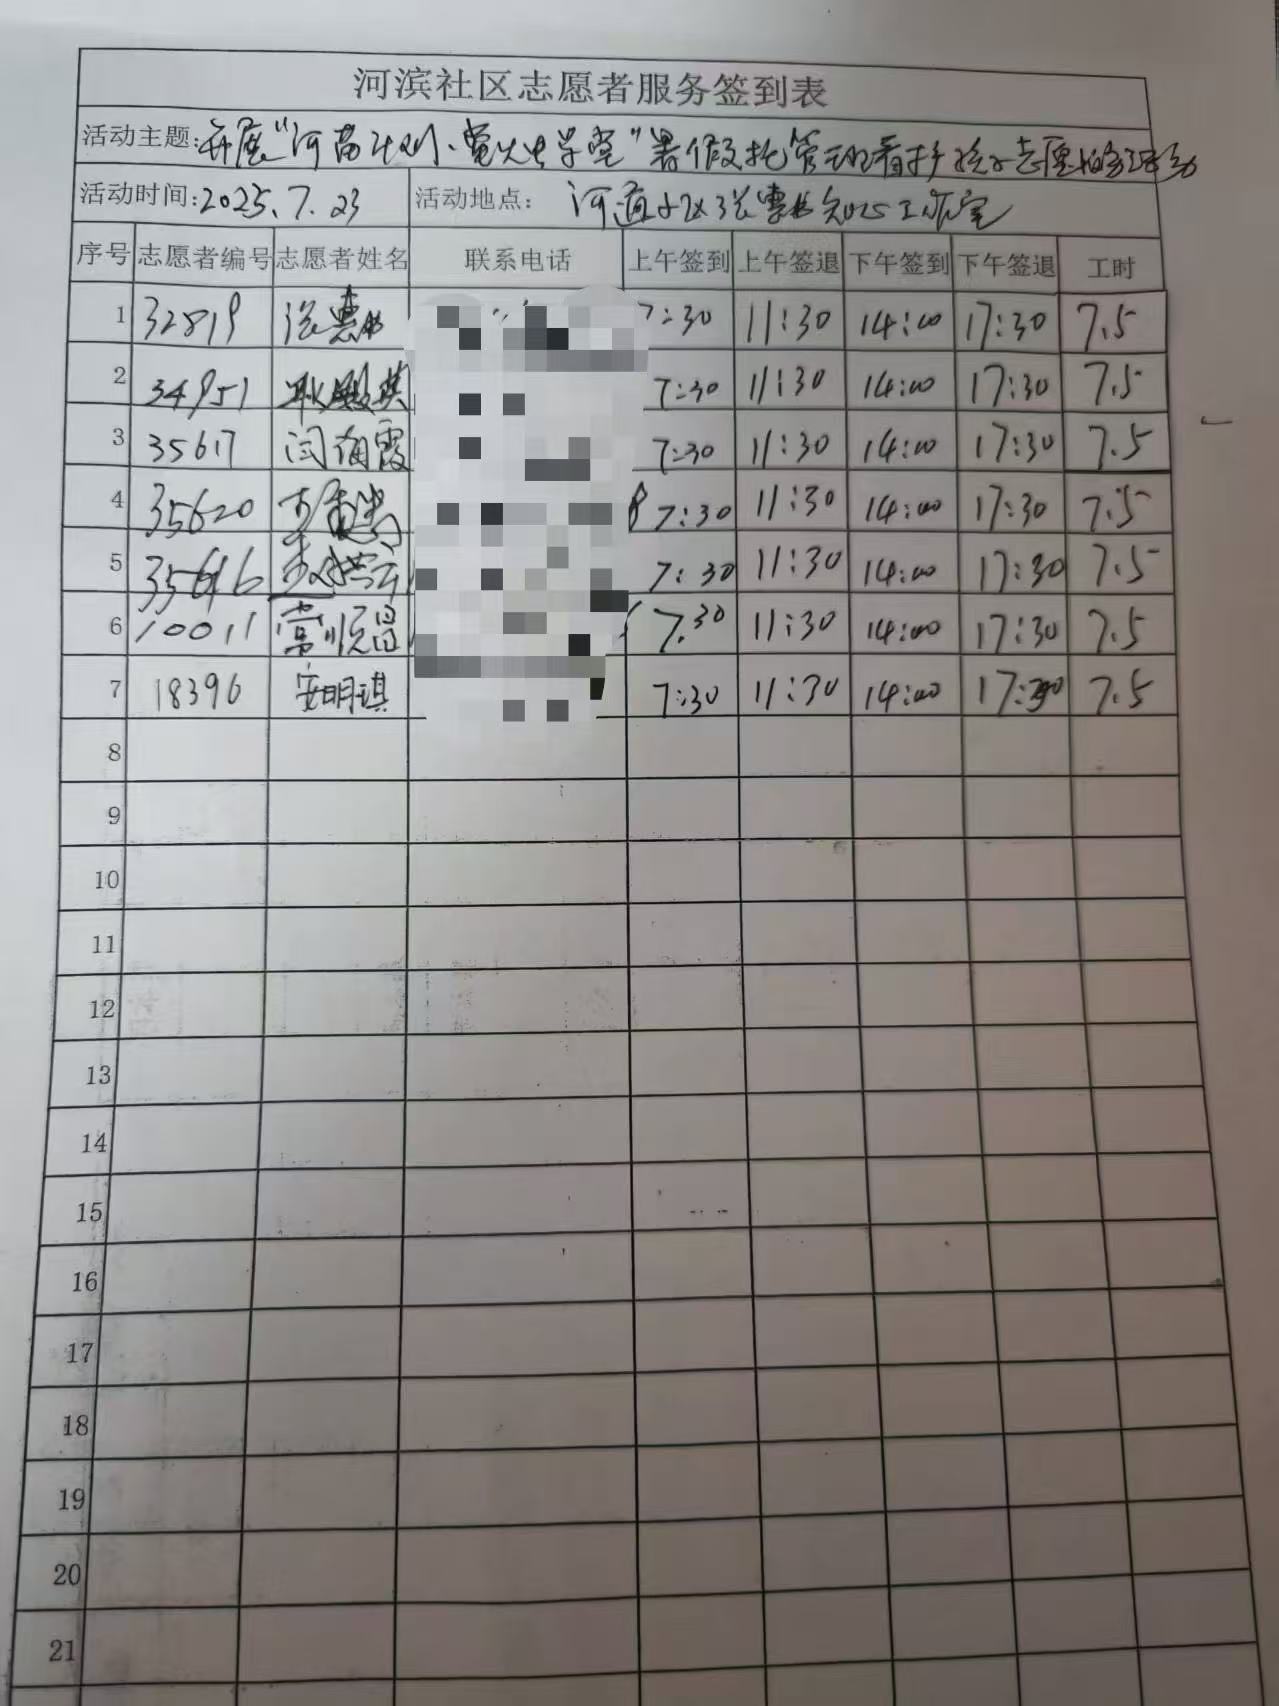 河滨社区志愿者服务签到表
活动主题:开展"河苗计划·萤火虫学堂"暑假托管班看护孩子志愿服务活动
活动时间:2025.7.23 活动地点: 河道小区张惠书知心工作室
序号 志愿者编号 志愿者姓名 联系电话 上午签到 上午签退 下午签到 下午签退 工时
1 32819 张惠书 7:30 11:30 14:00 17:30 7.5
2 34951 7:30 11:30 14:00 17:30 7.5
3 35617 闫海霞 7:30 11:30 14:00 17:30 7.5
4 35620 7:30 11:30 14:00 17:30 7.5
5 35616 7:30 11:30 14:00 17:30 7.5
6 10011 常顺昌 7:30 11:30 14:00 17:30 7.5
7 18396 安明琪 7:30 11:30 14:00 17:30 7.5
8
9
10
11
12
13
14
15
16
17
18
19
20
21